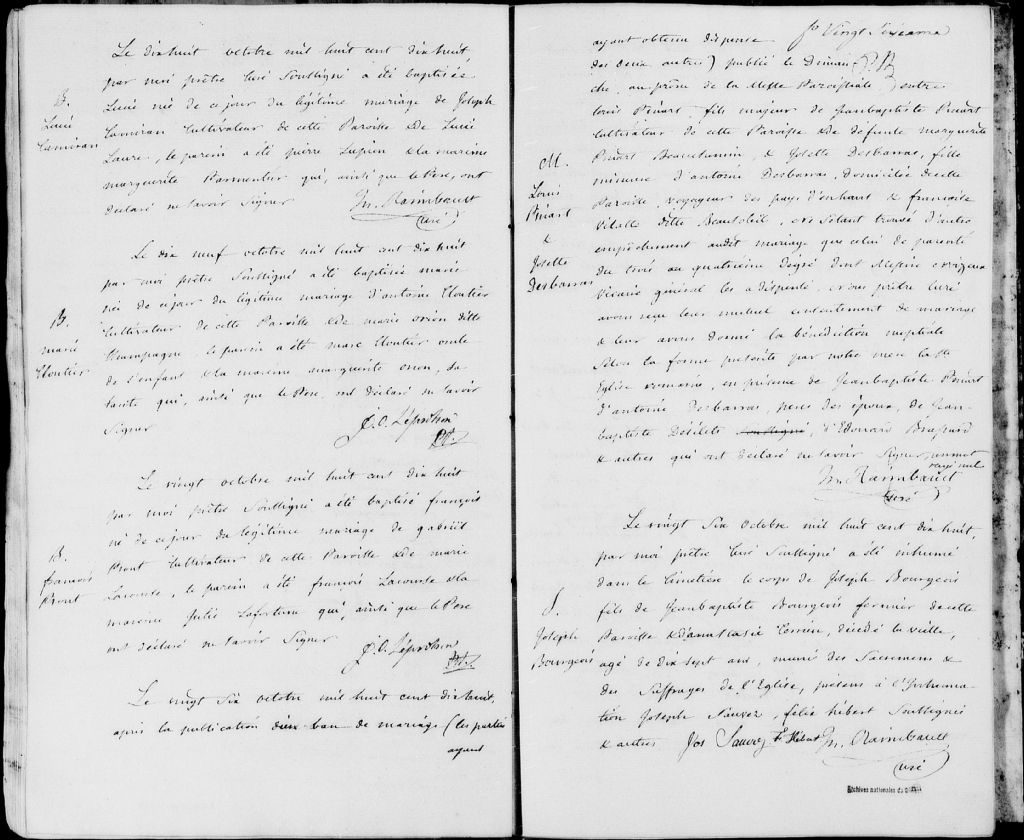 Le dix huit octobre mil huit cent dix huit,
par moi prêtre Curé Soussigné a été baptisée
B.
Lucie
Camiran
Lucie née de ce jour du légitime mariage de Joseph
Camiran Cultivateur de cette Paroisse & de Lucie
Laure, le parein a été pierre Lupien & la mareine
marguerite Parmentier qui, ainsi que le Pere, ont
déclaré ne savoir Signer
Jn. Raimbault
Curé
Le dix neuf octobre mil huit cent dix huit
par moi prêtre Soussigné a été baptisée marie
B.
marie
Cloutier
née de ce jour du légitime mariage d'antoine Cloutier
Cultivateur de cette Paroisse & de marie orion ditte
Champagne le parein a été marc Cloutier oncle
de l'enfant & la mareine marguerite orion, sa
tante qui, ainsi que le Pere, ont déclaré ne savoir
Signer
J.O. Léprohon
Ptr.
Le vingt octobre mil huit cent dix huit
par moi prêtre Soussigné a été baptisé françois
B.
françois
Prout
né de ce jour du légitime mariage de gabriel
Prout Cultivateur de cette Paroisse & de marie
Lacourse, le parein a été françois Lacourse & la
mareine Julie Lafortune qui, ainsi que le Pere
ont déclaré ne savoir Signer
J.O. Léprohon
Ptr.
Le vingt Six octobre mil huit cent dix huit,
après la publication d'un ban de mariage (les parties
ayant
fo Vingt Sixieme
ayant obtenu dispense
des deux autres) publié le Diman-
che, au prône de la Messe Paroissiale, entre
M.
Louis
Pinart
&
Josette
Desbarras
Louis Pinart, fils majeur de Jeanbaptiste Pinart
Cultivateur de cette Paroisse & de defunte marguerite
Pinart Beauchemin, & Josette Desbarras, fille
mineure d'antoine Desbarras, domiciliée de cette
Paroisse, voyageur des pays d'enhaut & françoise
Vitalle ditte Beausoleil, ne s'étant trouvé d'autre
empêchement audit mariage que celui de parenté
du trois au quatrième dégré dont Messire
Vicaire général les a dispensé, nous prêtre Curé
avons reçu leur mutuel consentement de mariage
& leur avons donné la bénédiction nuptiale
selon la forme prescrite par notre mere la Ste
Eglise romaine, en présence de Jeanbaptiste Pinart
d'antoine Desbarras, peres des époux, de Jean-
baptiste Désilets Soussigné, d'Edouard Brassard
& autres qui ont déclaré ne savoir Signer, un mot
rayé nul
Jn. Raimbault
Curé
Le vingt Six octobre mil huit cent dix huit,
par moi prêtre Curé Soussigné a été inhumé
dans le Cimetière le corps de Joseph Bourgeois
S.
Joseph
Bourgeois
fils de Jeanbaptiste Bourgeois fermier de cette
Paroisse & d'anastasie Terrien, décédé la veille,
agé de dix sept ans, muni des Sacremens &
des Suffrages de l'Eglise, présens à l'Inhuma-
tion Joseph Sauvez, félix hébert Soussignés
& autres Jos Sauvez F. Hébert Jn. Raimbault
Curé
Archives nationales du